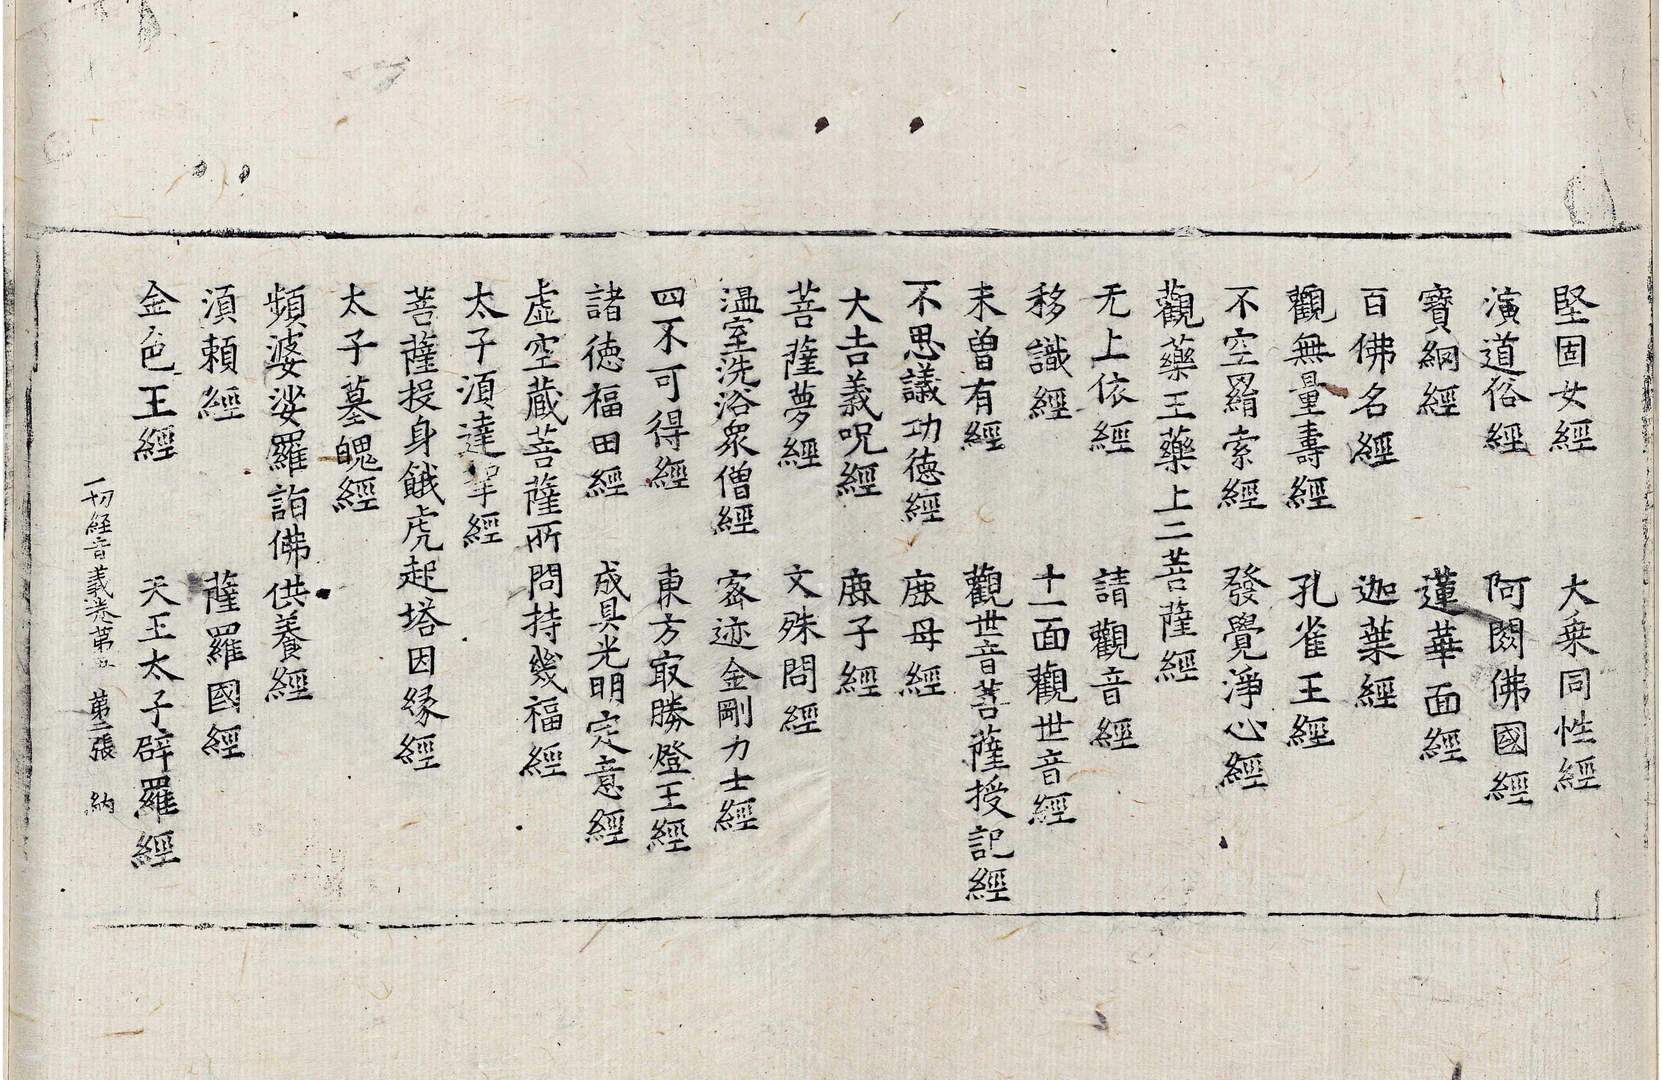 堅固女經 大乗同性經
演道俗經 阿閦佛國經
寶網經 蓮華面經
百佛名經 迦葉經
觀無量壽經 孔雀王經
不空羂索經 發覺淨心經
觀藥王藥上二菩薩經
无上依經 請觀音經
移識經 十一面觀世音經
未曽有經 觀世音菩薩授記經
不思議功德經 鹿母經
大吉義呪經 鹿子經
菩薩夢經 文殊問經
温室洗浴衆僧經 密迹金剛力士經
四不可得經 東方㝡勝燈王經
諸德福田經 成具光明定意經
虛空藏菩薩所問持幾福經
太子湏達拏經
菩薩投身餓虎起塔因緣經
太子墓魄經
頻婆娑羅詣佛供養經
湏賴經 薩羅國經
金色王經 天王太子辟羅經
一切経音義卷第五 第二張 納